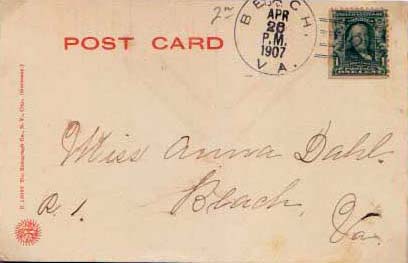 POST CARD
BEACH.
APR
26
P.M.
1907
VA.
1 ONE CENT 1
Miss Anna Dahl.
R. 1.
Beach,
Va.